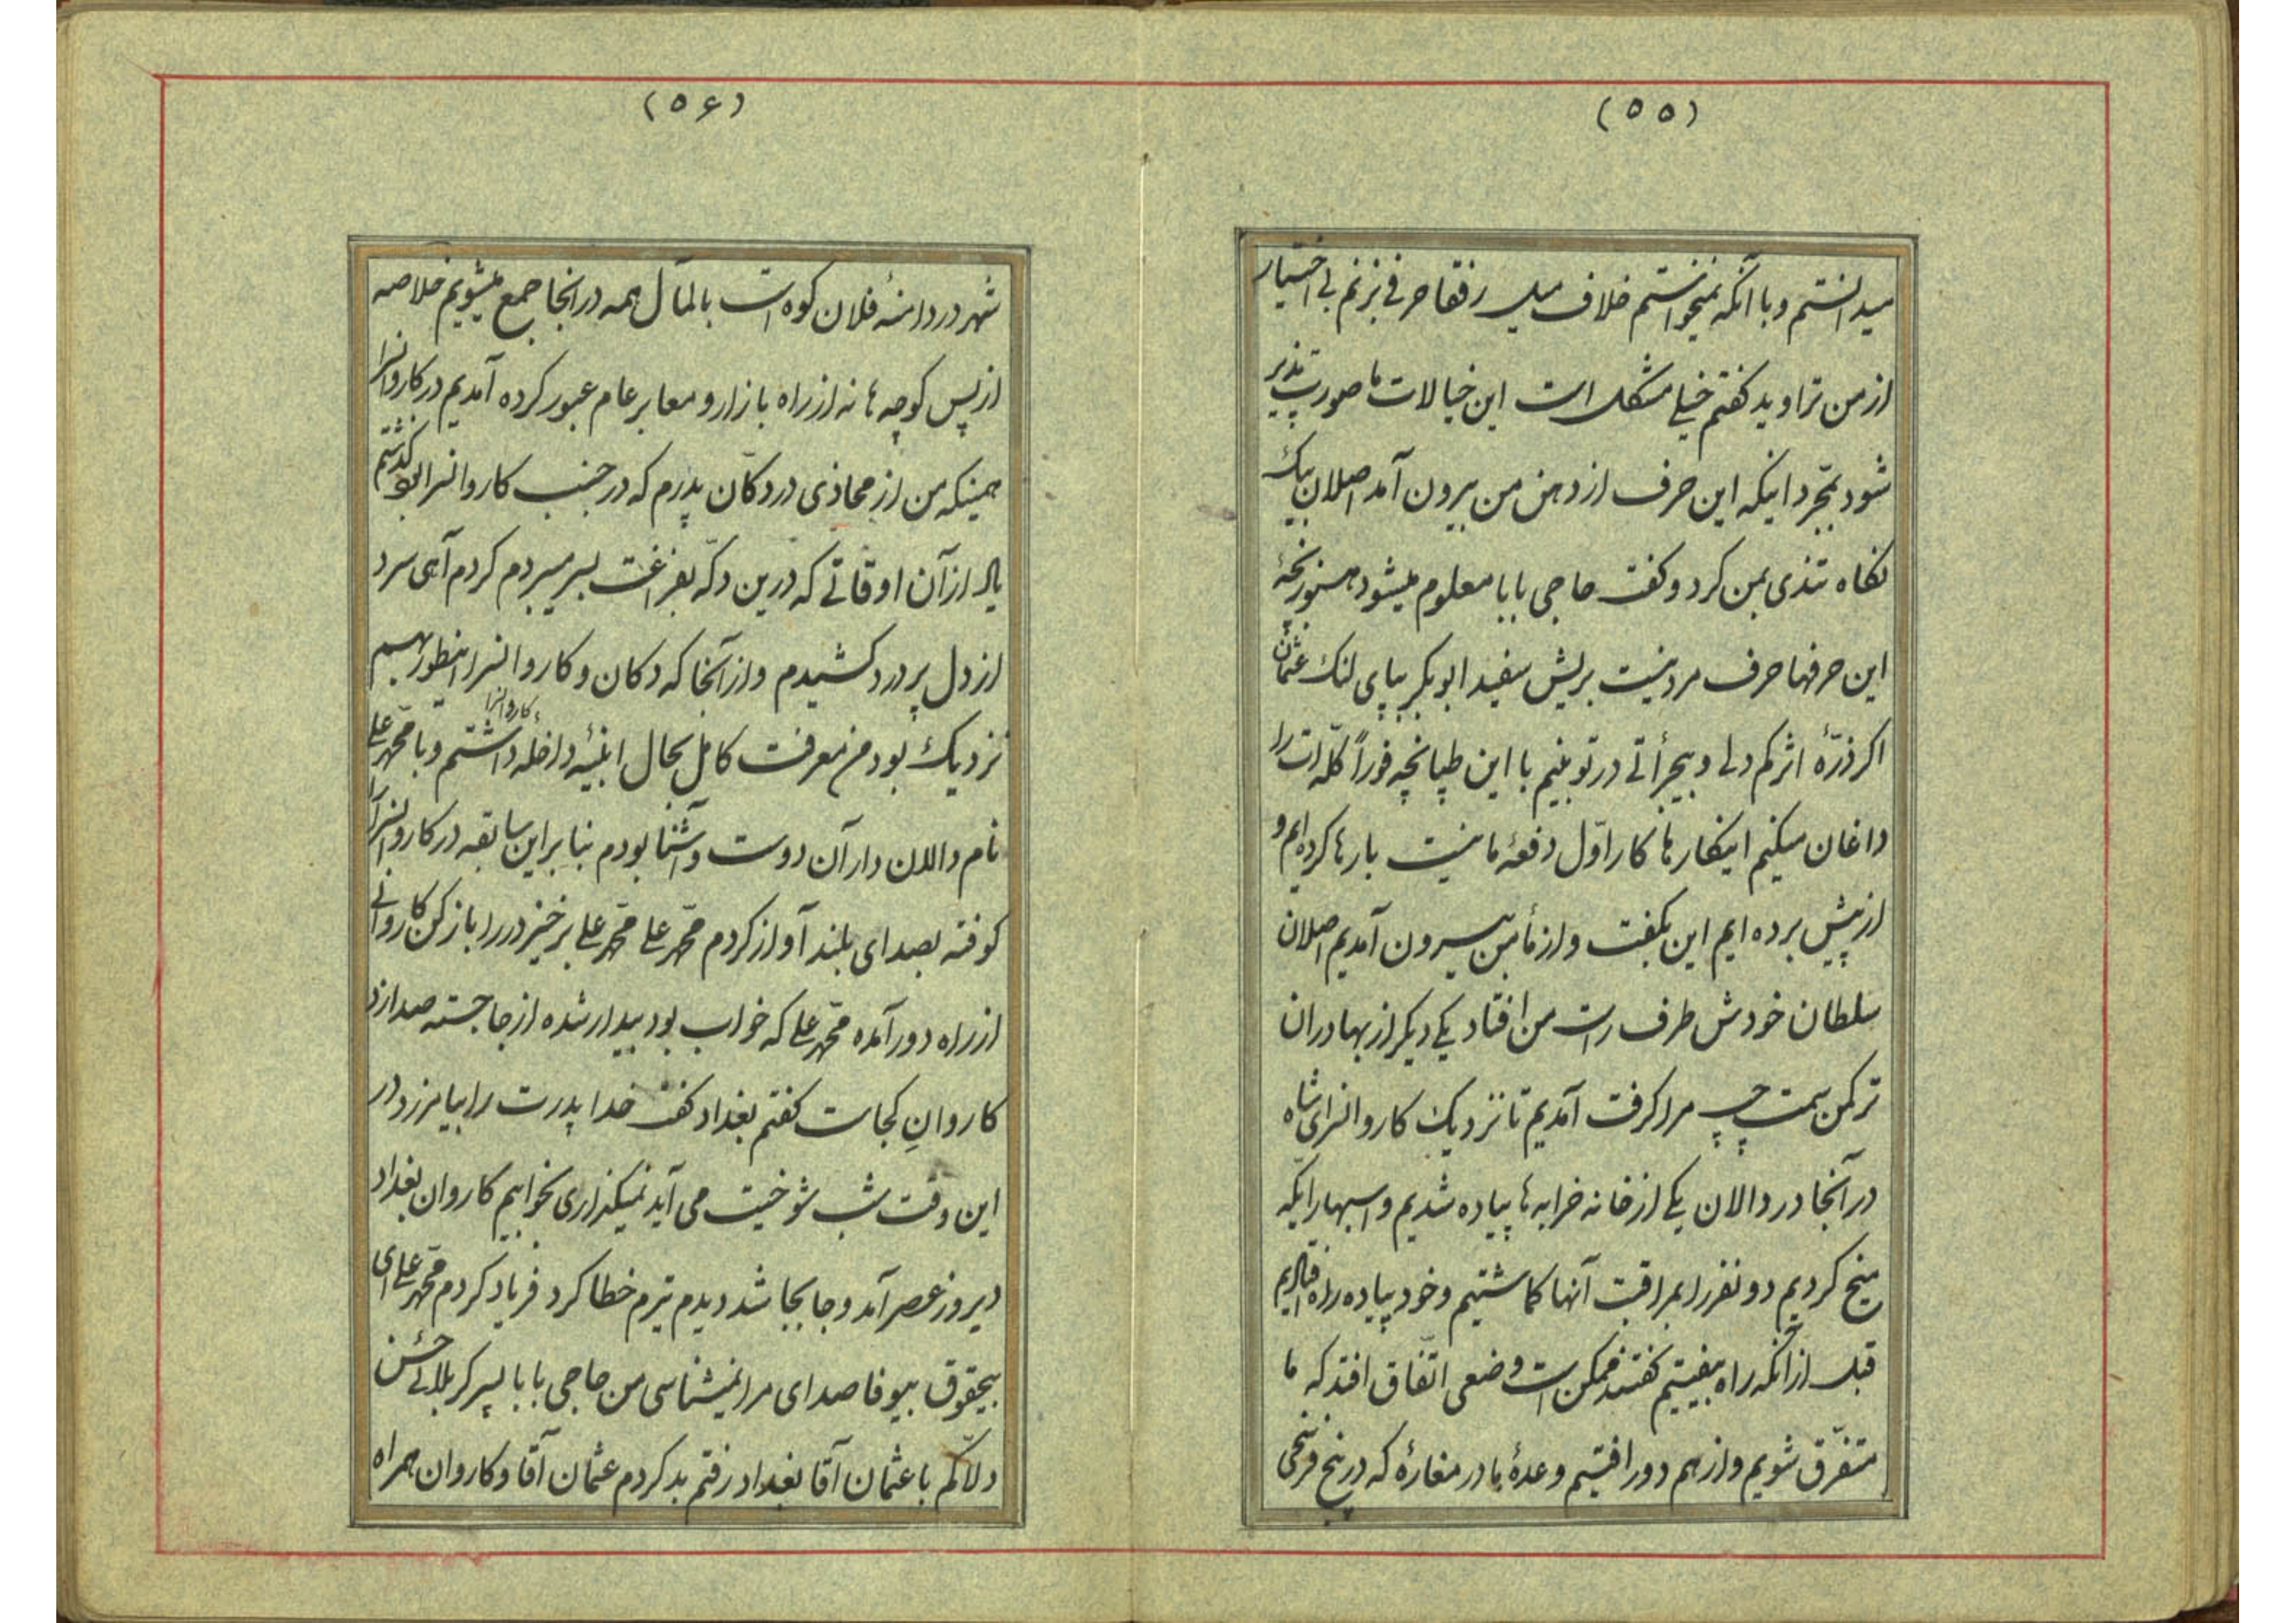 (۵۵)
میدانستم و با آنکه نمیخواستم خلاف میل رفقا حرفی بزنم بی اختیار
از من تراوید کفتم خیلی مشکل است این خیالات ما صورت پذیر
شود بمجرد اینکه این حرف از دهن من بیرون آمد اصلان بیک
نکاه تندی بمن کرد و کفت حاجی بابا معلوم میشود هنوز بچهٔ
این حرفها حرف مرد نیست بریش سفید ابوبکر بپای لنک عثمان
اکر ذرّهٔ اثر کم دلی و بیجرأتی در تو بینیم با این طپانچه فوراً کلّه ات را
داغان میکنیم اینکارها کار اوّل دفعهٔ ما نیست بارها کرده ایم و
از پیش برده ایم این بکفت و از مأمن بیرون آمدیم اصلان
سلطان خودش طرف راست من افتاد یکی دیکر از بهادران
ترکمن سمت چپ مرا کرفت آمدیم تا نزدیک کاروانسرای شاه
در آنجا در دالان یکی از خانه خرابه ها پیاده شدیم و اسبها را یکّه
میخ کردیم دو نفر را بمراقبت آنها کماشتیم و خود پیاده راه افتادیم
قبل از آنکه راه بیفیتیم کفتند ممکن است وضعی اتّفاق افتد که ما
متفرّق شویم و از هم دور افتیم وعدهٔ ما در مغارهٔ که در پنج فرسخی
(۵۶)
شهر در دامنهٔ فلان کوه است بالمآل همه در آنجا جمع میشویم خلاصه
از پس کوچه ها نه از راه بازار و معابر عام عبور کرده آمدیم در کاروانسرا
همینکه من از محاذی در دکّان پدرم که در جنب کاروانسرا بود کذشتم
یاد از آن اوقاتی که درین دکّه بفراغت بسر میبردم کردم آهی سرد
از دل پر درد کشیدم و از آنجا که دکان و کاروانسرا اینطور بهم
نزدیک بود من معرفت کامل بحال ابنیهٔ داخلهٔ کاروانسرا داشتم و با محمّد علی
نام دالان دار آن دوست و آشنا بودم بنا براین سابقه در کاروانسرا را
کوفته بصدای بلند آواز کردم محمّد علی محمّد علی برخیز در را باز کن کاروانی
از راه دور آمده محمّد علی که خواب بود بیدار شده از جا جسته صدا زد
کاروانِ کجاست کفتم بغداد کفت خدا پدرت را بیامرزد در
این وقت شب شوخیت می آید نمیکذاری بخوابیم کاروان بغداد
دیروز عصر آمد و جا بجا شد دیدم تیرم خطا کرد فریاد کردم محمّد علی ای
بیحقوق بیوفا صدای مرا نمیشناسی من حاجی بابا پسر کربلائی حسن
دلاّکم با عثمان آقا بغداد رفتم بد کردم عثمان آقا و کاروان همراه